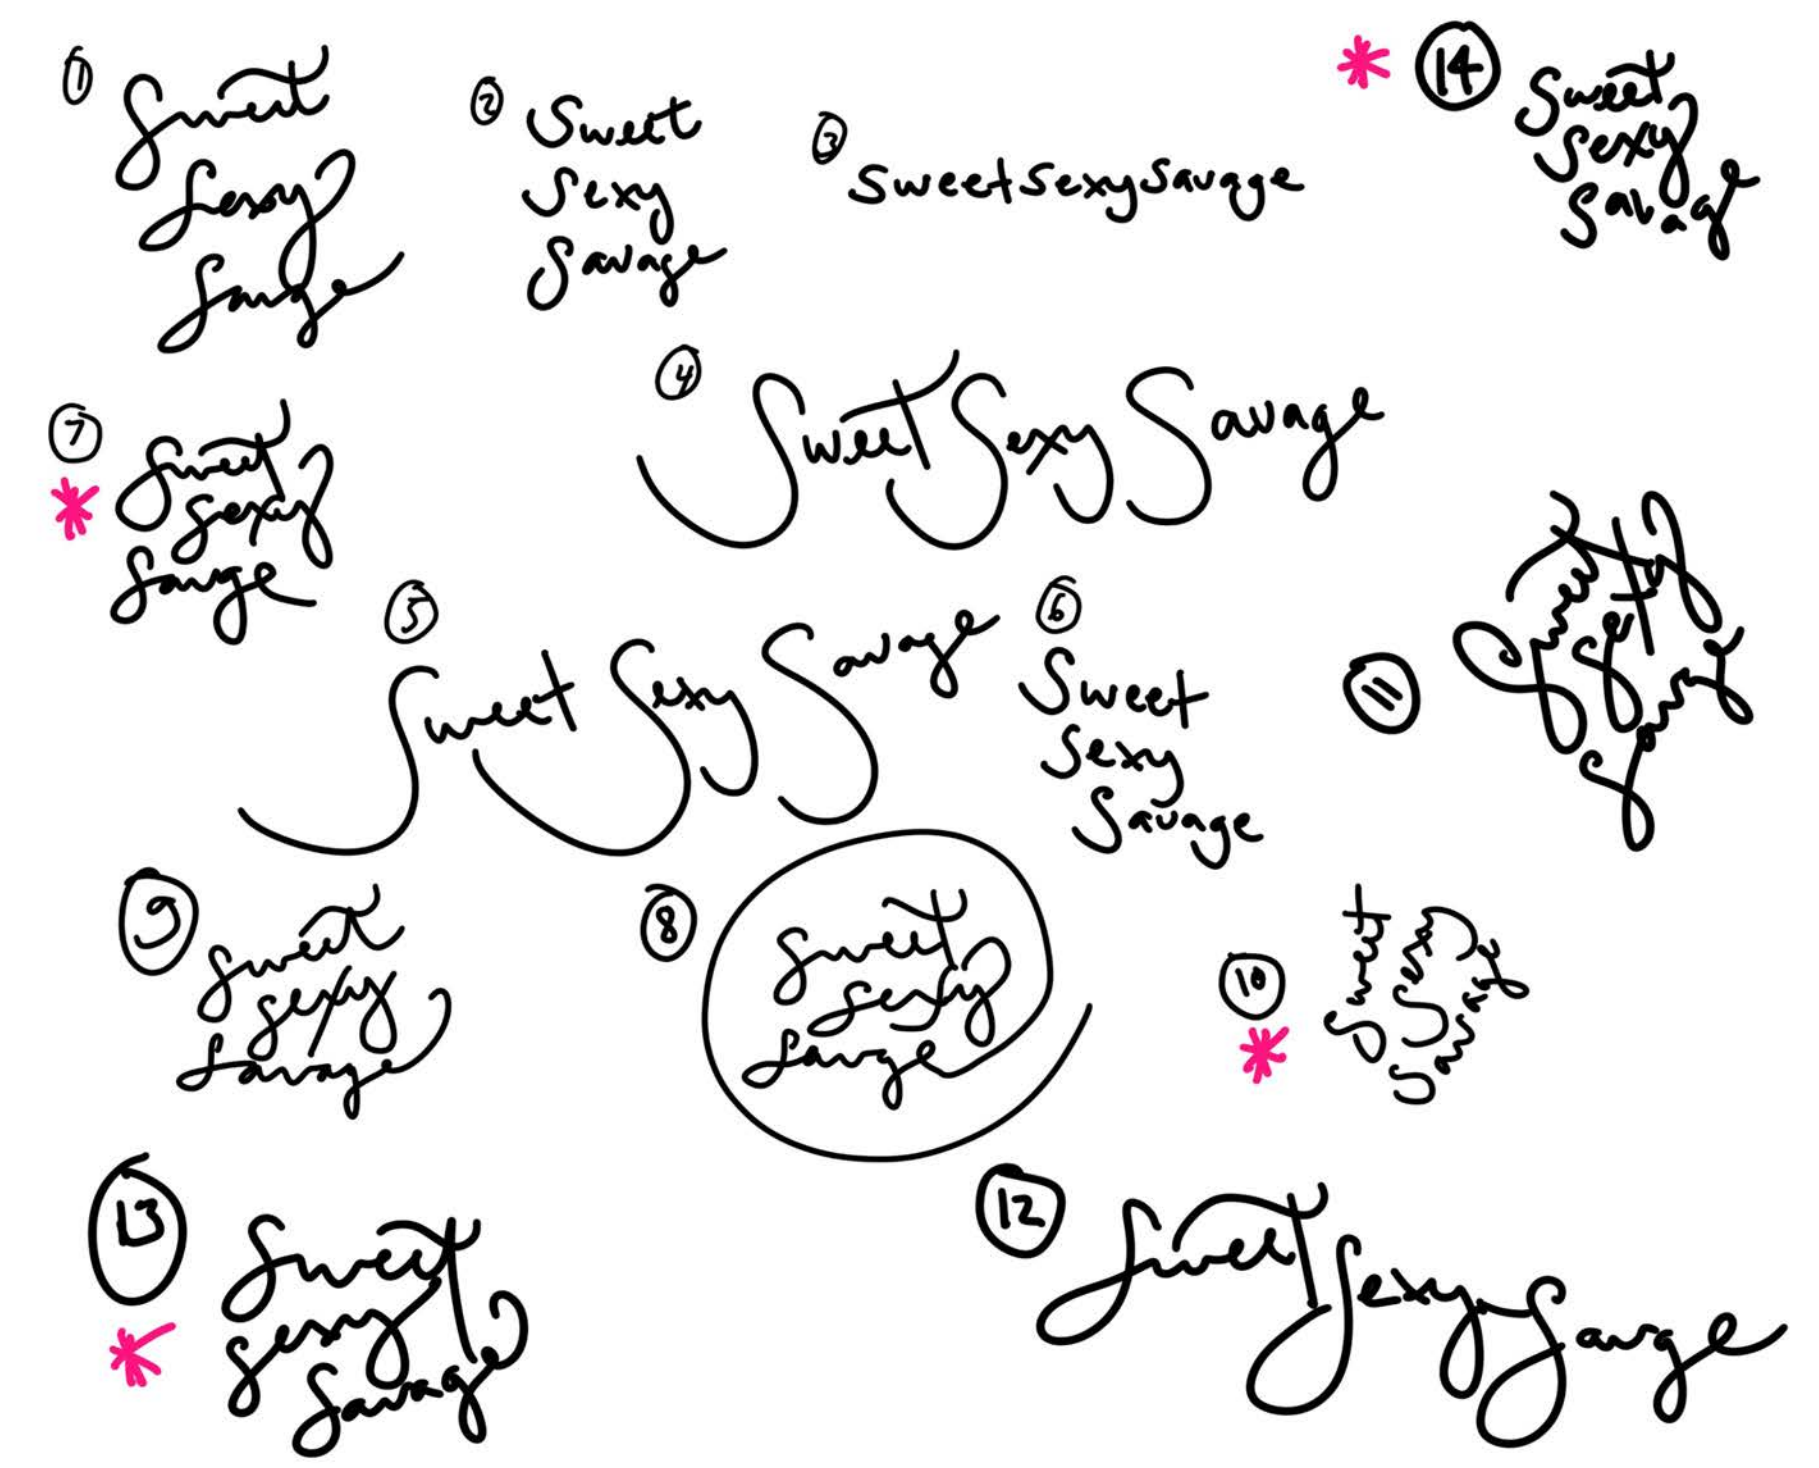 1
Sweet
Sexy
Savage
2
Sweet
Sexy
Savage
3
SweetSexySavage
14
Sweet
Sexy
Savage
4
Sweet Sexy Savage
7
Sweet
Sexy
Savage
5
Sweet Sexy Savage
6
Sweet
Sexy
Savage
11
Sweet
Sexy
Savage
9
Sweet
Sexy
Savage
8
Sweet
Sexy
Savage
10
Sweet
Sexy
Savage
13
Sweet
Sexy
Savage
12
Sweet Sexy Savage